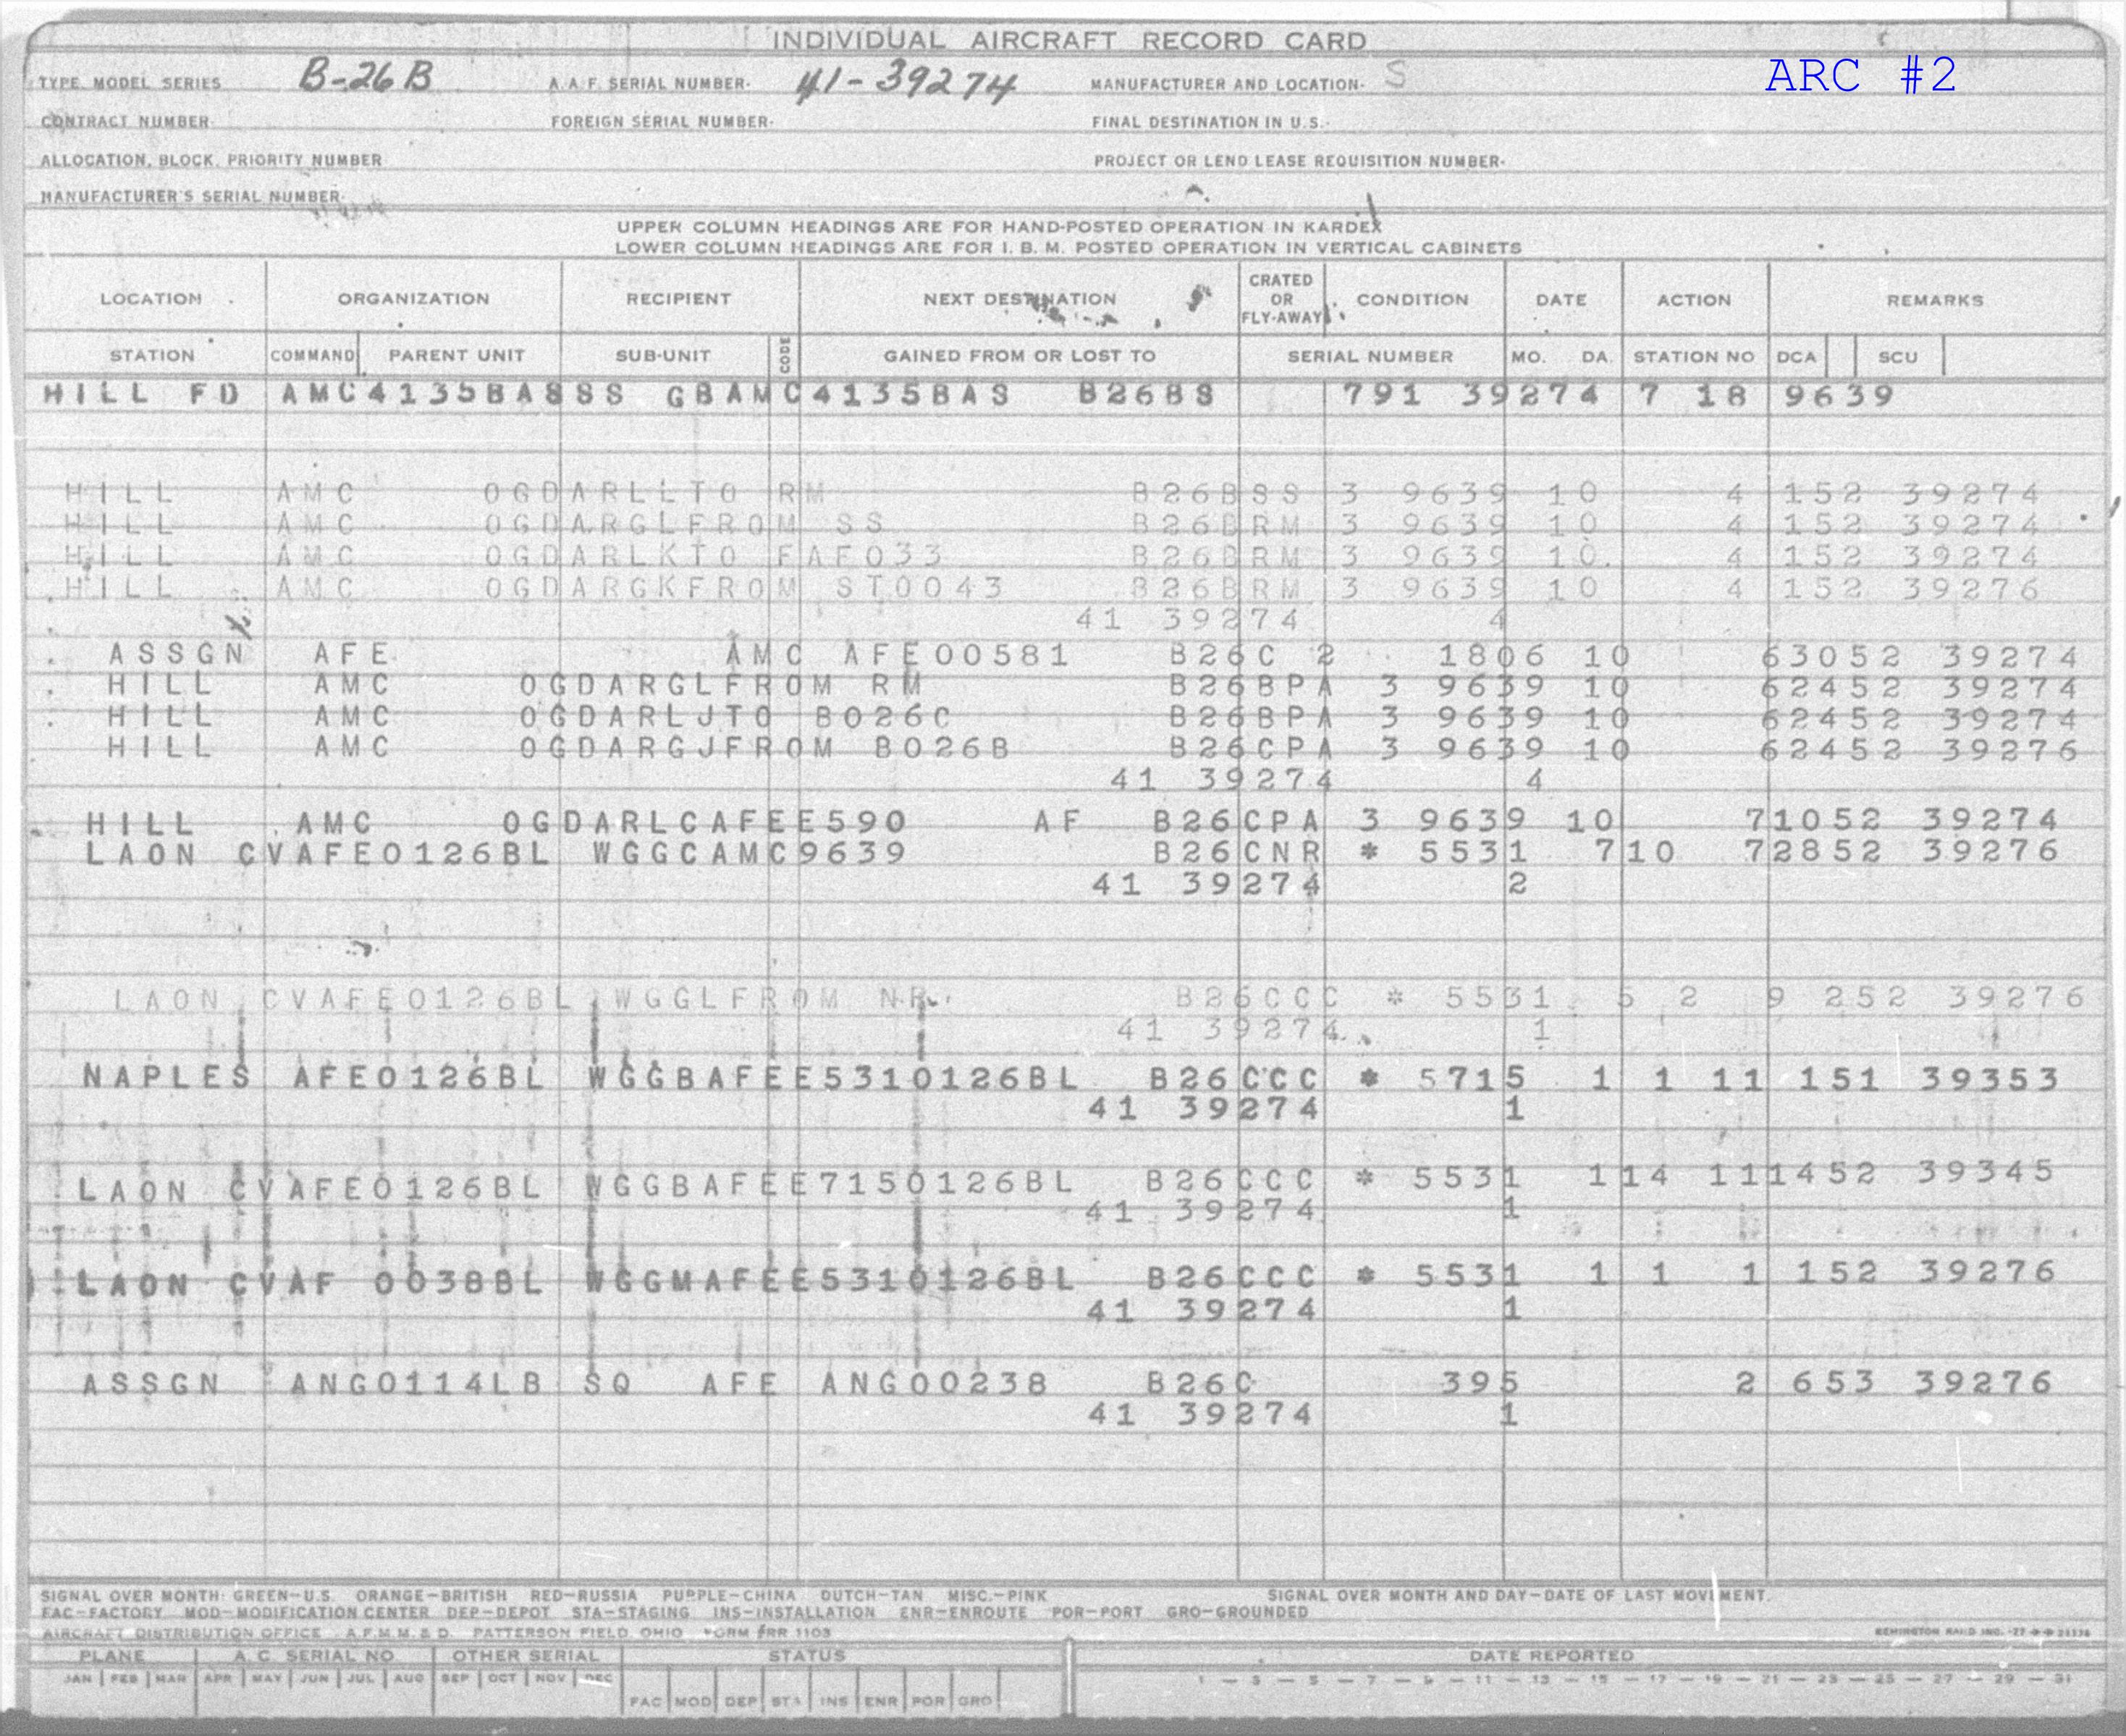 INDIVIDUAL AIRCRAFT RECORD CARD
ARC #2
TYPE, MODEL SERIES B-26B A.A.F. SERIAL NUMBER- 41-39274 MANUFACTURER AND LOCATION- S
CONTRACT NUMBER- FOREIGN SERIAL NUMBER- FINAL DESTINATION IN U.S.-
ALLOCATION, BLOCK, PRIORITY NUMBER PROJECT OR LEND LEASE REQUISITION NUMBER-
MANUFACTURER'S SERIAL NUMBER-
UPPER COLUMN HEADINGS ARE FOR HAND-POSTED OPERATION IN KARDEX
LOWER COLUMN HEADINGS ARE FOR I. B. M. POSTED OPERATION IN VERTICAL CABINETS
LOCATION ORGANIZATION RECIPIENT NEXT DESTINATION CRATED OR FLY-AWAY CONDITION DATE ACTION REMARKS
STATION COMMAND PARENT UNIT SUB-UNIT CODE GAINED FROM OR LOST TO SERIAL NUMBER MO. DA. STATION NO DCA SCU
HILL FD AMC4135BASSS GBAMC4135BAS B26BS 791 39274 7 18 9639
HILL AMC OGDARLLTO RM B26BSS 3 9639 10 4 152 39274
HILL AMC OGDARGLFROM SS B26BRM 3 9639 10 4 152 39274
HILL AMC OGDARLKTO FAF033 B26BRM 3 9639 10 4 152 39274
HILL AMC OGDARGKFROM ST0043 B26BRM 3 9639 10 4 152 39276
41 39274 4
ASSGN AFE AMC AFE00581 B26C 2 1806 10 63052 39274
HILL AMC OGDARGLFROM RM B26BPA 3 9639 10 62452 39274
HILL AMC OGDARLJTO B026C B26BPA 3 9639 10 62452 39274
HILL AMC OGDARGJFROM B026B B26CPA 3 9639 10 62452 39276
41 39274 4
HILL AMC OGDARLCAFEE590 AF B26CPA 3 9639 10 71052 39274
LAON CVAFE0126BL WGGCAMC9639 B26CNR * 5531 710 72852 39276
41 39274 2
LAON CVAFE0126BL WGGLFROM NR B26CCC * 5531 5 2 9 252 39276
41 39274 1
NAPLES AFE0126BL WGGBAFEE5310126BL B26CCC * 5715 1 1 11 151 39353
41 39274 1
LAON CVAFE0126BL WGGBAFEE7150126BL B26CCC * 5531 114 111452 39345
41 39274 1
LAON CVAF 0038BL WGGMAFEE5310126BL B26CCC * 5531 1 1 1 152 39276
41 39274 1
ASSGN ANG0114LB SQ AFE ANG00238 B26C 395 2 653 39276
41 39274 1
SIGNAL OVER MONTH: GREEN—U.S. ORANGE—BRITISH RED—RUSSIA PURPLE—CHINA DUTCH—TAN MISC.—PINK SIGNAL OVER MONTH AND DAY—DATE OF LAST MOVEMENT.
FAC—FACTORY MOD—MODIFICATION CENTER DEP—DEPOT STA—STAGING INS—INSTALLATION ENR—ENROUTE POR—PORT GRO—GROUNDED
AIRCRAFT DISTRIBUTION OFFICE A.F.M.M. & D. PATTERSON FIELD, OHIO FORM ARR 1103 REMINGTON RAND INC.
PLANE A. C. SERIAL NO OTHER SERIAL STATUS DATE REPORTED
JAN FEB MAR APR MAY JUN JUL AUG SEP OCT NOV DEC 1 — 3 — 5 — 7 — 9 — 11 — 13 — 15 — 17 — 19 — 21 — 23 — 25 — 27 — 29 — 31
FAC MOD DEP STA INS ENR POR GRO